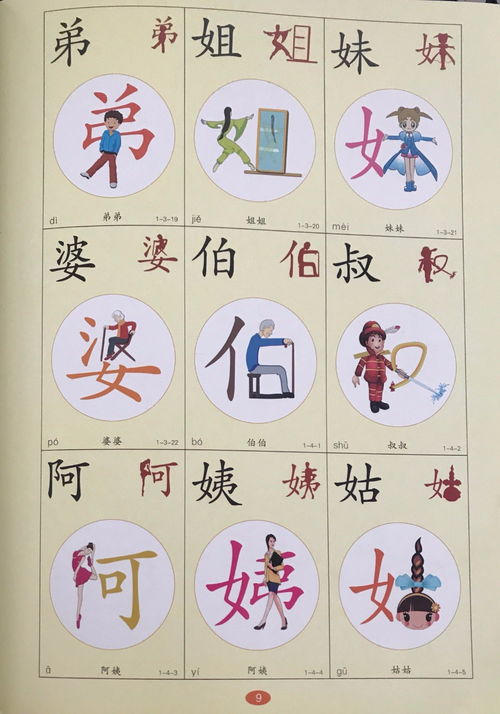 弟 弟
姐 姐
妹 妹
弟
姐
妹
dì 弟弟 1-3-19
jiě 姐姐 1-3-20
mèi 妹妹 1-3-21
婆 婆
伯 伯
叔 叔
婆
伯
叔
pó 婆婆 1-3-22
bó 伯伯 1-4-1
shū 叔叔 1-4-2
阿 阿
姨 姨
姑 姑
阿
姨
姑
ā 阿姨 1-4-3
yí 阿姨 1-4-4
gū 姑姑 1-4-5
9